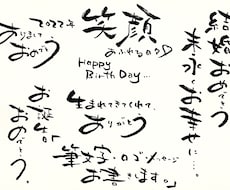 結婚おめでとう
末永くお幸せに…。
笑顔
あふれる日々
Happy
Birth Day...
生まれてきてくれて、
ありがとう
2022年
ありまして
おめでとう
お誕生日
おめでとう。
筆文字・ロゴ・メッセージ
お書きします。